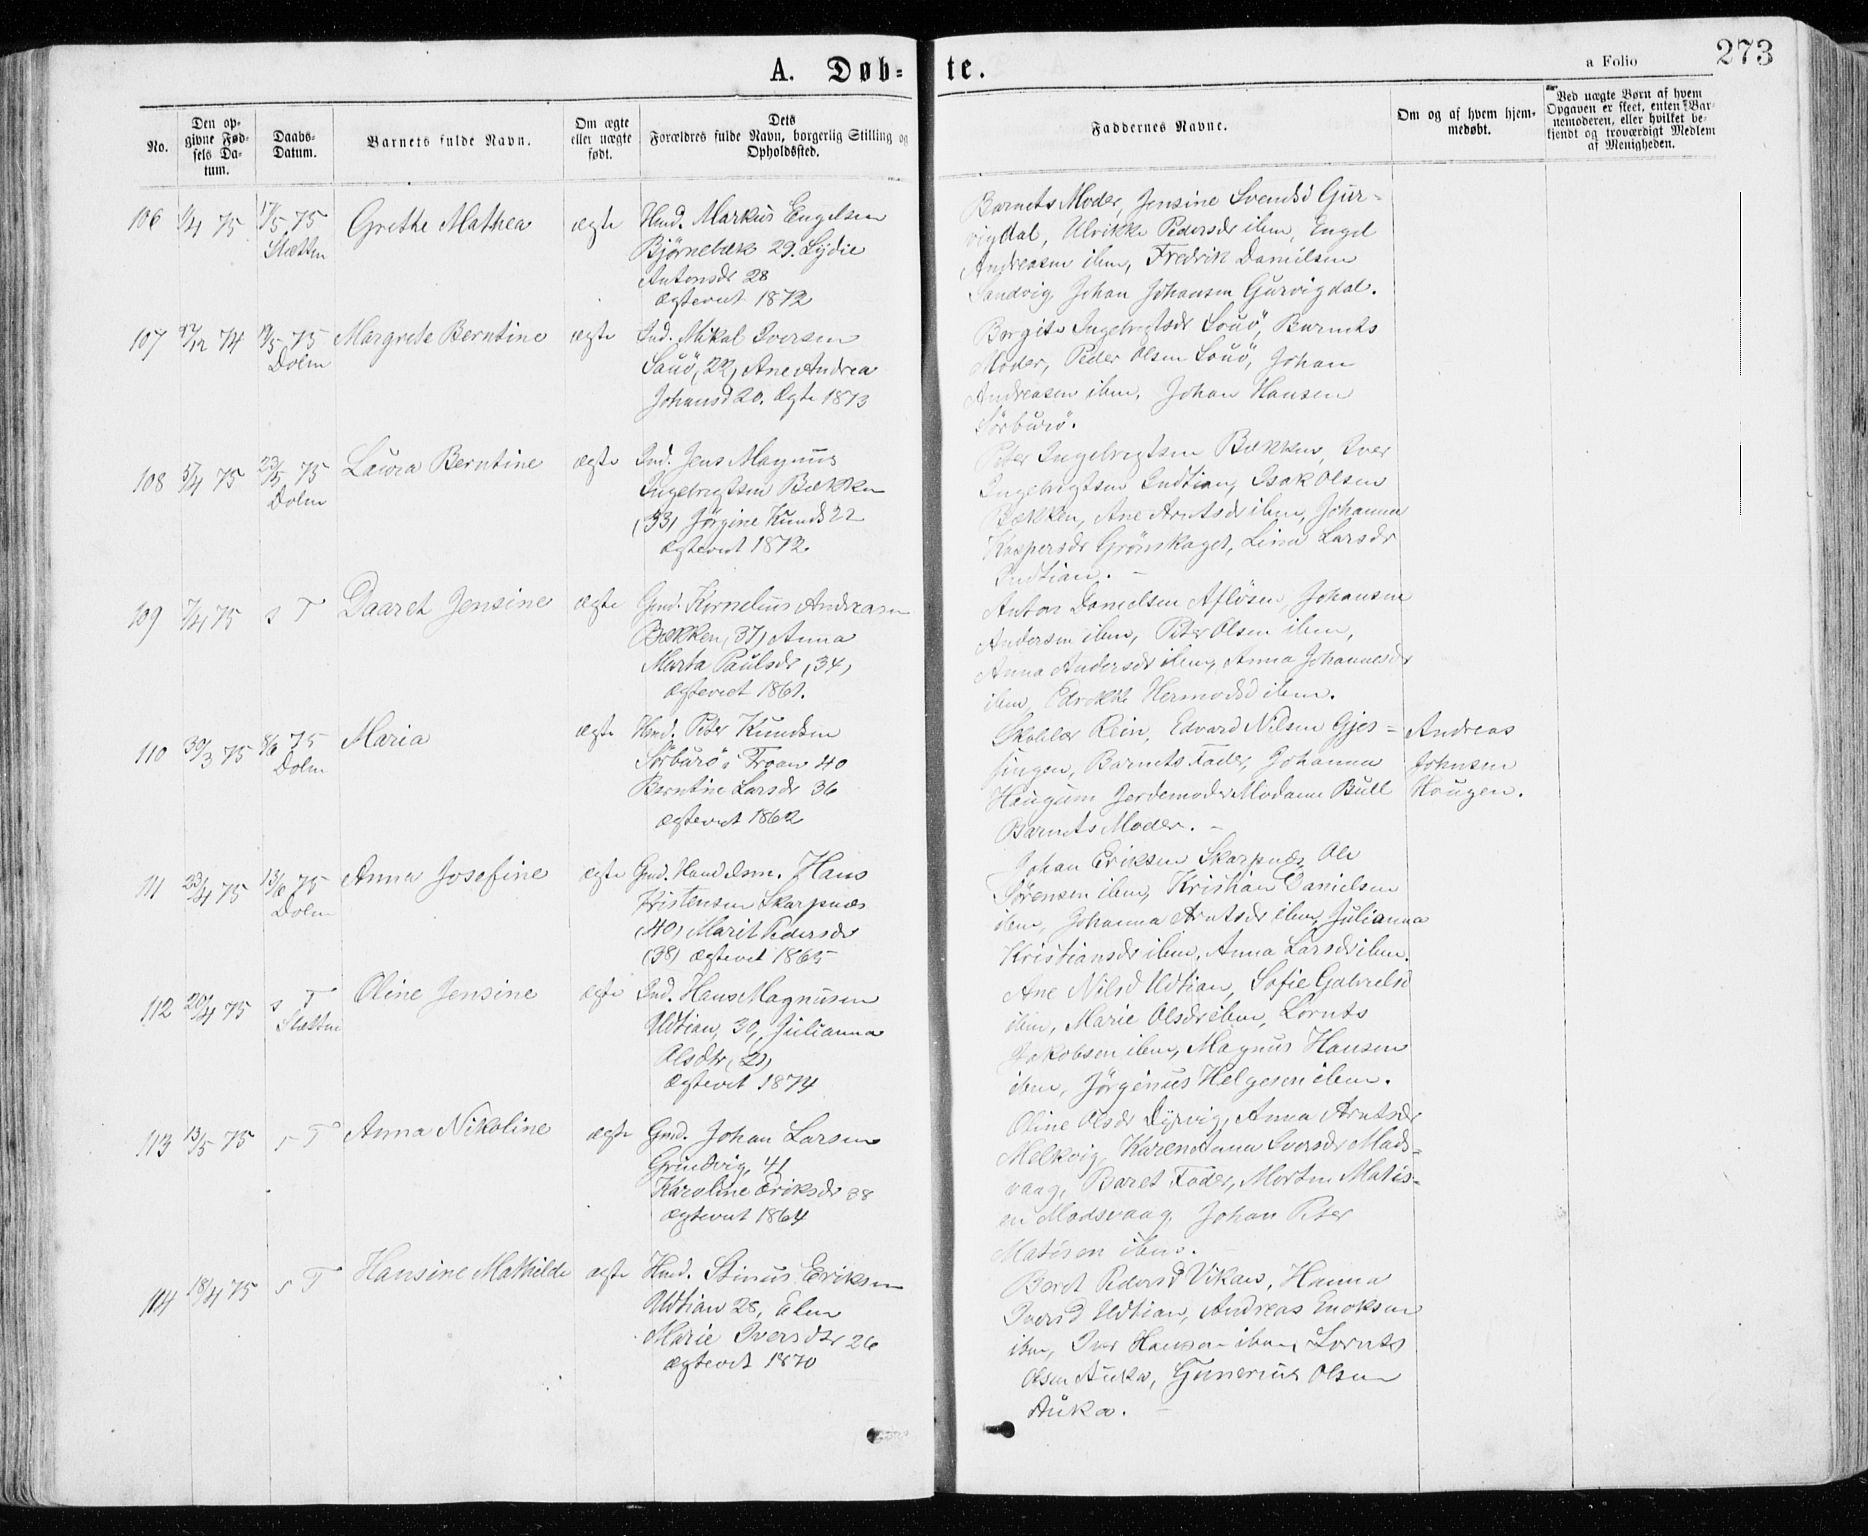 A. Døb-te.
a Folio 273
No.
Den op-
givne Fød-
sels Da-
tum.
Daabs-
Datum.
Barnets fulde Navn.
Om ægte
eller uægte
født.
Dets
Forældres fulde Navn, borgerlig Stilling og
Opholdssted.
Faddernes Navne.
Om og af hvem hjem-
medøbt.
Ved uægte Børn af hvem
Opgaven er skeet, enten Bar-
nemoderen, eller hvilket be-
kjendt og troværdigt Medlem
af Menigheden.
106 1/4 75 17/5 75 Grethe Mathea ægte Hmd. Markus Engelsen
Sletten Bjørnebæk 29. Lydie
Antonsdr 28
ægteviet 1872
Barnets Moder, Jensine Svendsd Gur-
vigdal, Ulrikke Pedersdr ibm, Engel
Andreasen ibm, Fredrik Danielsen
Sandvig, Johan Johansen Gurvigdal.
107 12/12 74 19/5 75 Margrete Berntine ægte Ind. Mikal Iversen
Dolm Sauö, 22, Ane Andrea
Johansd 20. Ægte 1873
Bergite Ingebrigtsdr Souö, Barnets
Moder, Peder Olsen Souö, Johan
Andreasen ibm, Johan Hansen
Sörburö.
108 5/4 75 23/5 75 Laura Berntine ægte Ind. Jens Magnus
Dolm Ingebrigtsen Bækken
(33) Jörgine Knuds 22
ægteviet 1872
Peter Ingebrigtsen Bækken, Iver
Ingebrigtsen Indtian, Isak Olsen
Bækken, Ane Arntsdr ibm, Johanna
Kaspersdr Grönskaget, Lina Larsdr
Indtian.
109 7/4 75 s T Daaret Jensine ægte Gmd. Kornelius Andreasen
Bækken, (37) Anna
Marta Paulsdr (34)
ægteviet 1861.
Anton Danielsen Aflösen, Johansen
Andersen ibm, Peter Olsen ibm,
Anna Andersdr ibm, Anna Johannesdr
ibm, Edrikke Hermodsd ibm.
110 30/3 75 6/6 75 Maria ægte Hmd. Peter Knudsen
Dolm Sörburö i Froan 40
Berntine Larsdr 36
ægteviet 1862
Skolelær Rein, Edvard Nilsen Gjes-
singen, Barnets Fader, Johanna
Haugum Jordemoder Madame Bull
Barnets Moder.
Andreas
Johnsen
Haugen.
111 23/4 75 13/6 75 Anna Josefine ægte Gmd. Handelsm. Hans
Dolm Kristensen Skarpnæs
(40) Marit Pedersdr
(38) ægteviet 1865
Johan Eriksen Skarpnæs, Ole
Sörensen ibm, Kristian Danielsen
ibm, Johanna Arntsdr ibm, Julianna
Kristiansdr ibm, Anna Larsdr ibm.
112 20/4 75 s T Oline Jensine ægte Ind. Hans Magnusen
Sletten Udtian, 30, Julianna
Olsdtr, (21)
ægteviet 1874
Ane Nilsd Udtian, Sofie Gabrielsd
ibm, Marie Olsdr ibm, Lornts
Jakobsen ibm, Magnus Hansen
ibm, Jörginus Helgesen ibm.
113 13/5 75 s T Anna Nikoline ægte Gmd. Johan Larsen
Grindvig, 41
Karoline Eriksdr 38
ægteviet 1864
Oline Olsdr Dyrvig, Anna Arntsdr
Melkvig, Karen Anna Iversdr Mads-
vaag, Baret Fader, Morten Matis-
en Madsvaag, Johan Peter
Matisen ibm.
114 18/4 75 s T Hansine Mathilde ægte Hmd. Stinus Eriksen
Udtian 28, Elen
Marie Iversdtr 26
ægteviet 1870
Beret Pedersd Vikan, Hanna
Iversd Udtian, Andreas Enoksen
ibm, Iver Hansen ibm, Lornts
Olsen Auka, Gunerius Olsen
Auka.